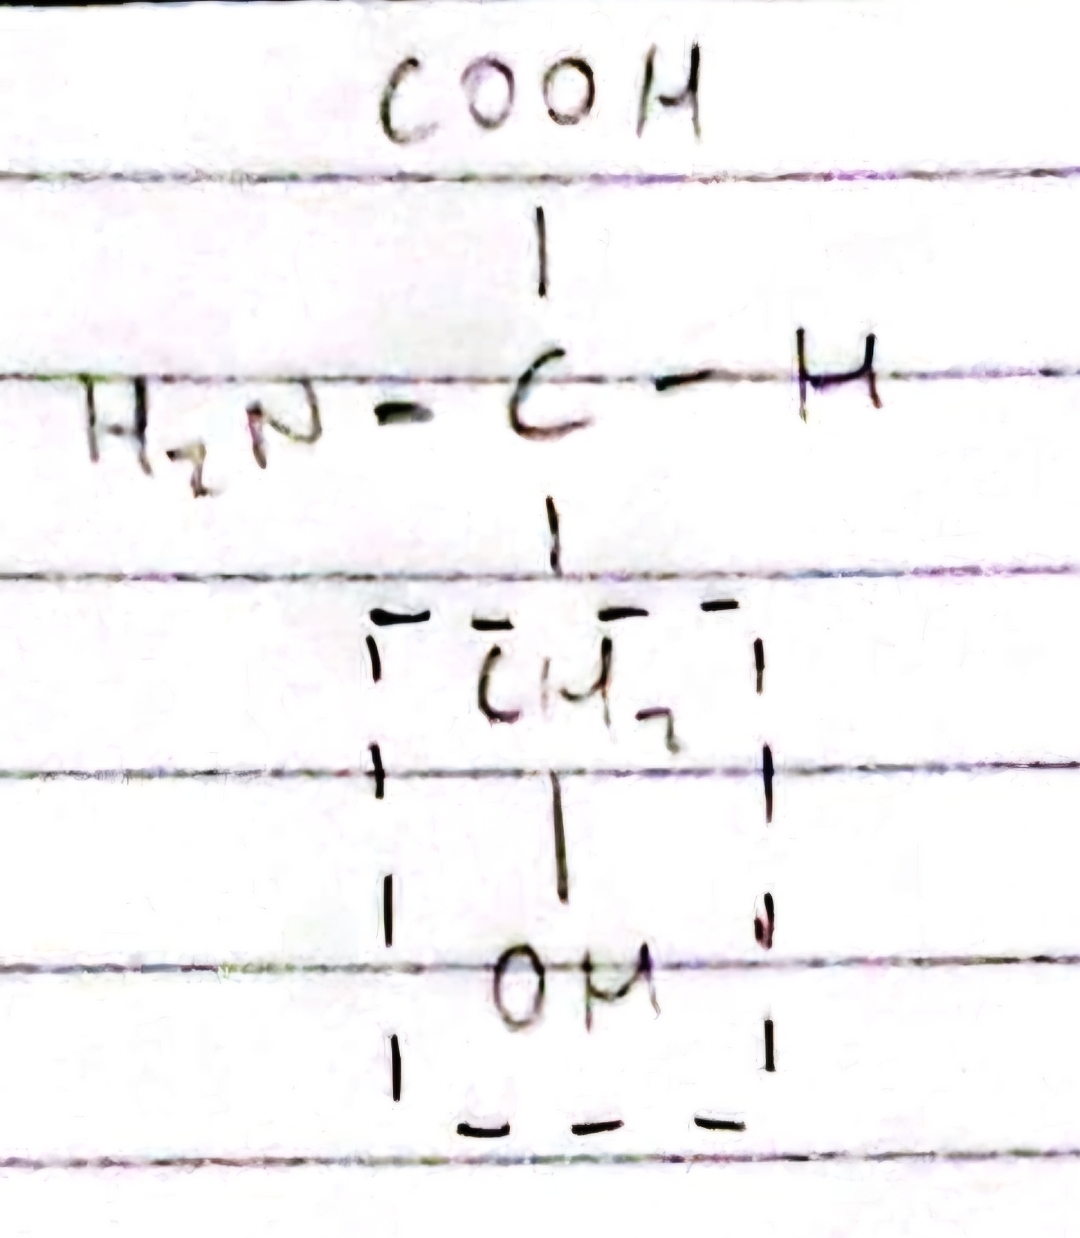 COOH
|
H₂N - C - H
|
CH₂
|
OH